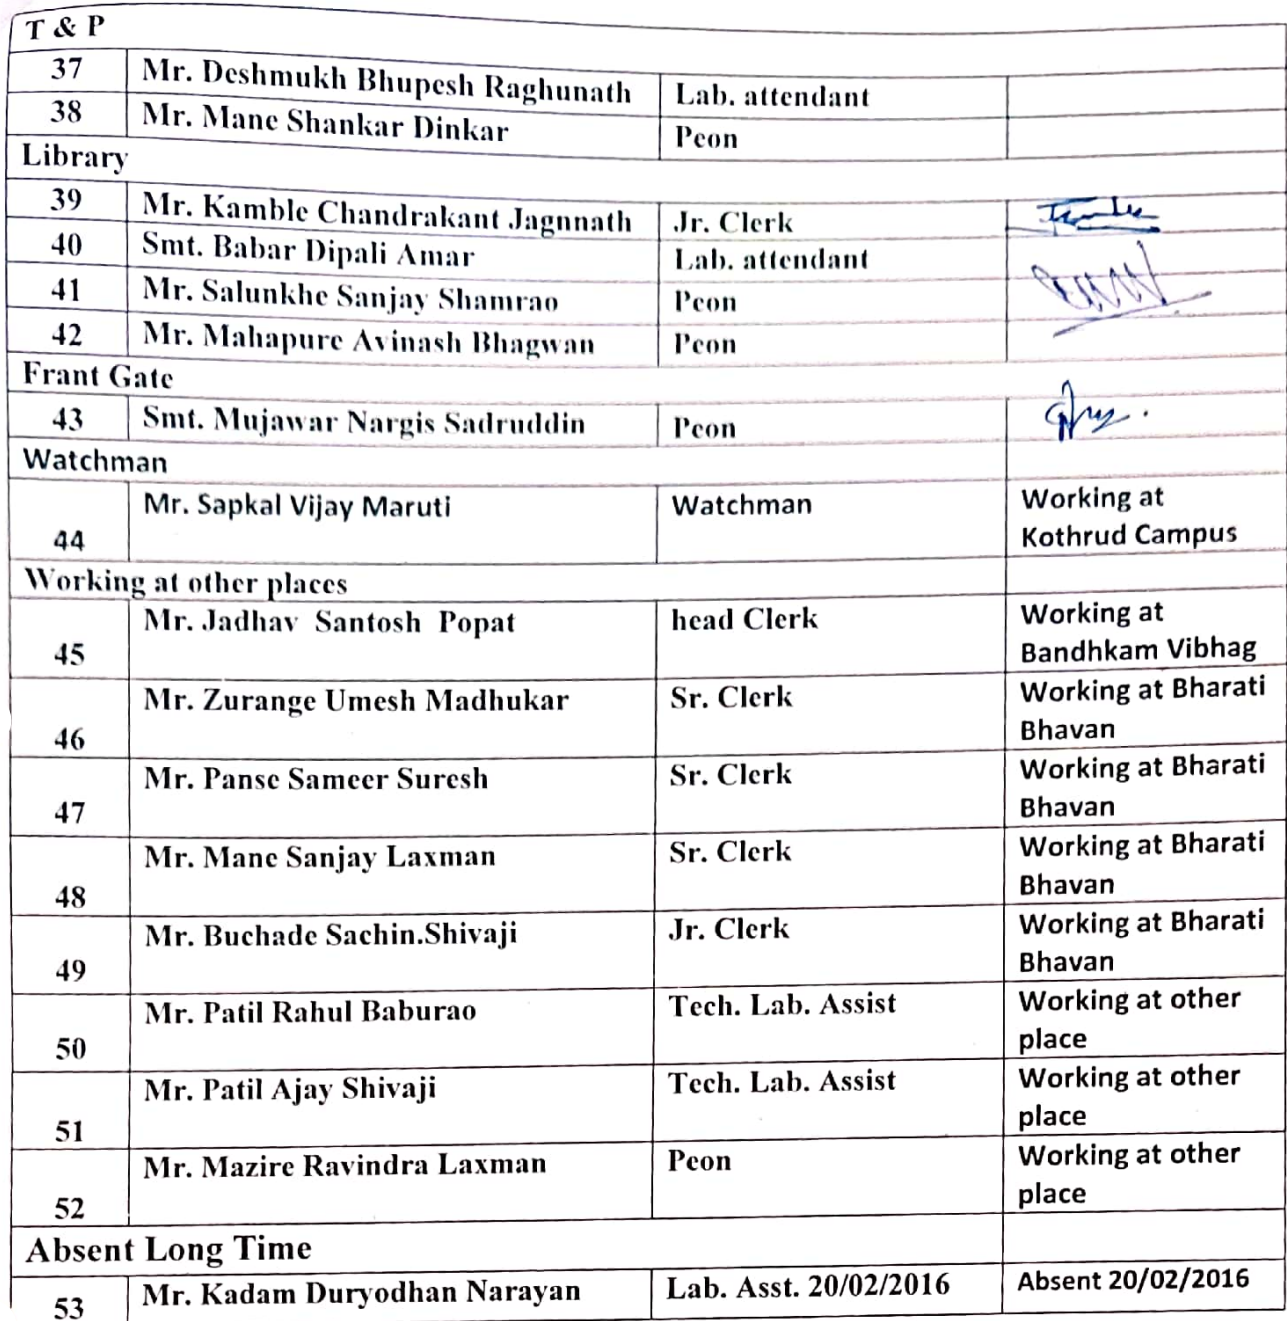 T & P
37 Mr. Deshmukh Bhupesh Raghunath Lab. attendant
38 Mr. Mane Shankar Dinkar Peon
Library
39 Mr. Kamble Chandrakant Jagnnath Jr. Clerk
40 Smt. Babar Dipali Amar Lab. attendant
41 Mr. Salunkhe Sanjay Shamrao Peon
42 Mr. Mahapure Avinash Bhagwan Peon
Frant Gate
43 Smt. Mujawar Nargis Sadruddin Peon
Watchman
Mr. Sapkal Vijay Maruti Watchman Working at
44 Kothrud Campus
Working at other places
Mr. Jadhav Santosh Popat head Clerk Working at
45 Bandhkam Vibhag
Mr. Zurange Umesh Madhukar Sr. Clerk Working at Bharati
46 Bhavan
Mr. Panse Sameer Suresh Sr. Clerk Working at Bharati
47 Bhavan
Mr. Mane Sanjay Laxman Sr. Clerk Working at Bharati
48 Bhavan
Mr. Buchade Sachin.Shivaji Jr. Clerk Working at Bharati
49 Bhavan
Mr. Patil Rahul Baburao Tech. Lab. Assist Working at other
50 place
Mr. Patil Ajay Shivaji Tech. Lab. Assist Working at other
51 place
Mr. Mazire Ravindra Laxman Peon Working at other
52 place
Absent Long Time
53 Mr. Kadam Duryodhan Narayan Lab. Asst. 20/02/2016 Absent 20/02/2016